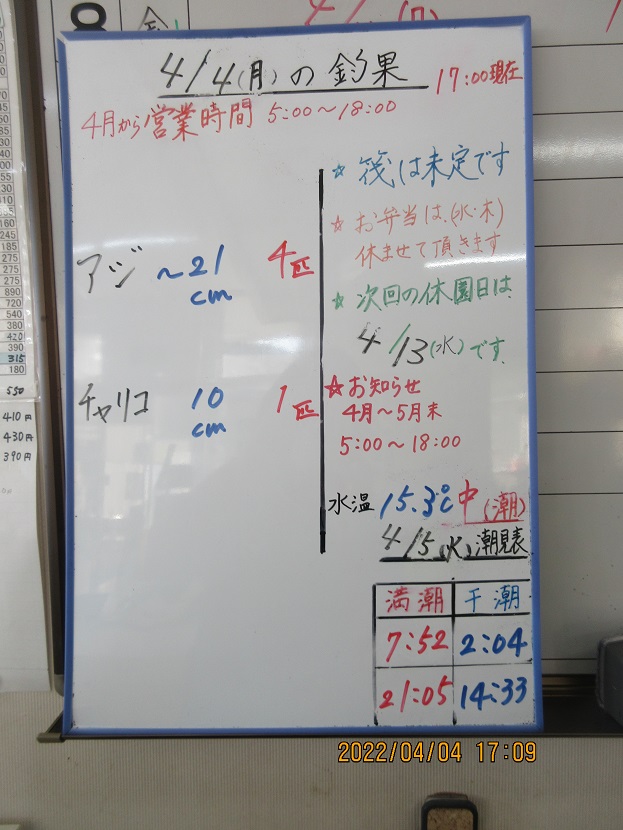 4/4(月)の釣果
17:00現在
4月から営業時間 5:00〜18:00
アジ 〜21cm 4匹
チャリコ 10cm 1匹
☆ 筏は未定です
☆ お弁当は、(水・木)
休ませて頂きます
☆ 次回の休園日は、
4/13(水)です。
☆お知らせ
4月〜5月末
5:00〜18:00
水温 15.3℃ 中(潮)
4/5(火)潮見表
満潮 干潮
7:52 2:04
21:05 14:33
2022/04/04 17:09
310
315
180
550
410円
430円
390円